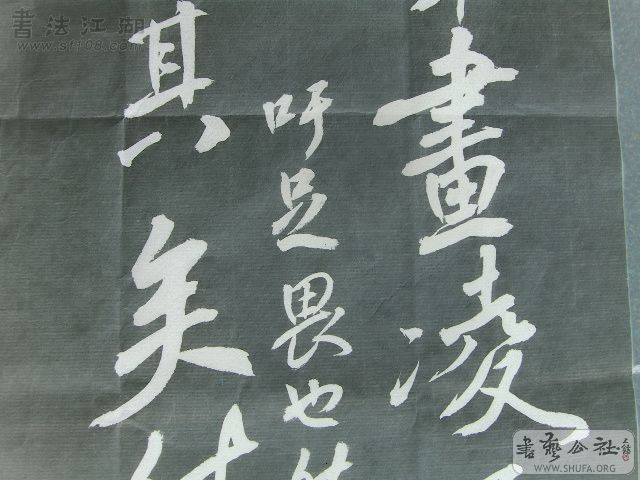 畫凌
吁足畏也
其矣
書法江湖
www.sf108.com
書藝公社
WWW.SHUFA.ORG